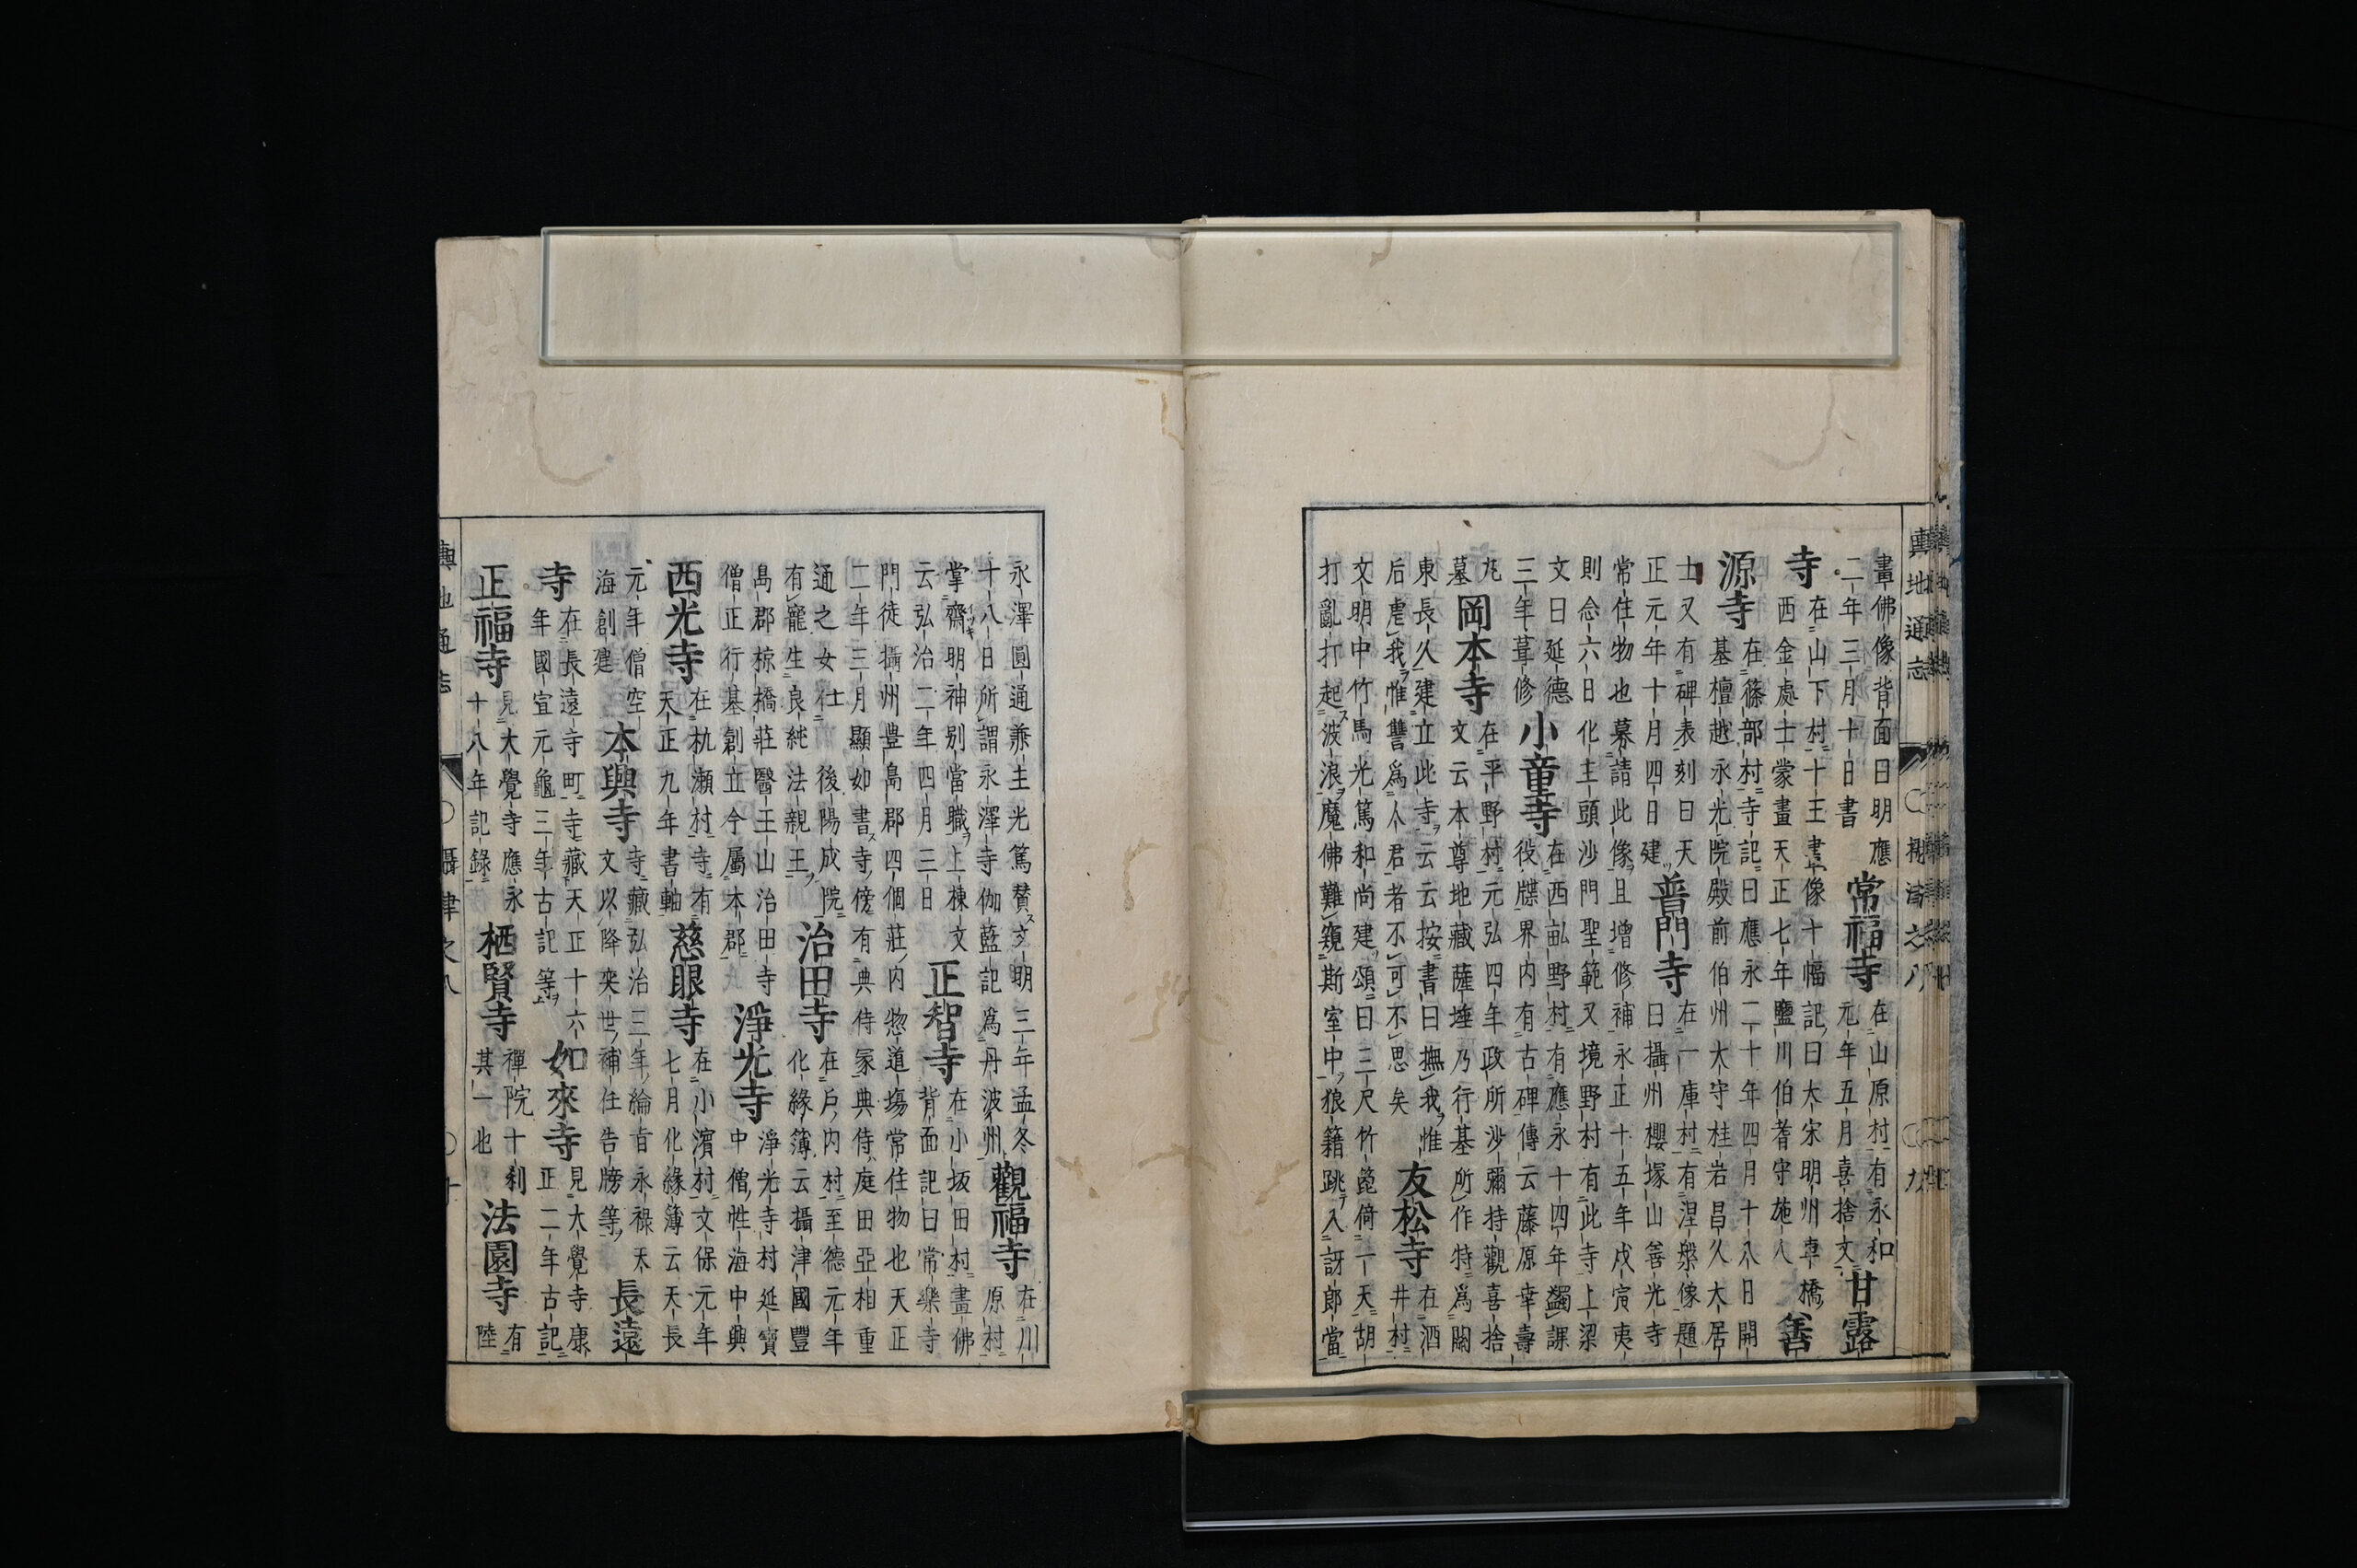 輿地通志
攝津之八
九
畫佛像背面曰明應
二年三月十日書
常福寺
在山原村有永和
元年五月喜捨文
甘露
寺
在山下村十王畫像十幅記曰大宋明州車橋
西金處士蒙畫天正七年鹽川伯耆守施入
善
源寺
在篠部村寺記曰應永二十年四月十八日開
基檀越永光院殿前伯州大守桂岩昌久大居
士又有碑表刻曰天
正元年十月四日建
普門寺
在一庫村有涅槃像題
曰攝州櫻塚山善光寺
常住物也募請此像且增修補永正十五年戊寅夷
則念六日化主頭沙門聖範又境野村有此寺上梁
文曰延德
三年葺修
小童寺
在西畆野村有應永十四年蠲課
役牒界内有古碑傳云藤原幸壽
丸
墓
岡本寺
在平野村元弘四年政所沙彌持觀喜捨
文云本尊地藏薩埵乃行基所作特爲關
東長久建立此寺云云按書曰撫我惟
后虐我惟讐爲人君者不可不思矣
友松寺
在酒
井村
文明中竹馬光篤和尚建頌曰三尺竹篦倚一天胡
打亂打起波浪魔佛難窺斯室中狼籍跳入訝郎當
永澤圓通兼主光篤賛文明三年孟冬
十八日所謂永澤寺伽藍記爲丹波州
觀福寺
在川
原村
掌齋明神別當職上棟文
云弘治二年四月三日
正智寺
在小坂田村畫佛
背面記曰常樂寺
門徒攝州豊島郡四個莊内惣道場常住物也天正
二年三月顯如書寺傍有典侍冢典侍庭田亞相重
通之女仕後陽成院
有寵生良純法親王
治田寺
在戸内村至德元年
化緣簿云攝津國豐
島郡椋橋莊醫王山治田寺
僧正行基創立今屬本郡
淨光寺
淨光寺村延寶
中僧性海中興
西光寺
在杭瀬村寺有
天正九年書軸
慈眼寺
在小濱村文保元年
七月化緣簿云天長
元年僧空
海創建
本興寺
寺藏弘治三年綸旨永祿天
文以降來世補任告牓等
長遠
寺
在長遠寺町寺藏天正十六
年國宣元龜三年古記等
如來寺
見大覺寺康
正二年古記
正福寺
見大覺寺應永
十八年記錄
栖賢寺
禪院十刹
其一也
法園寺
有
陸
輿地通志
攝津之八
十